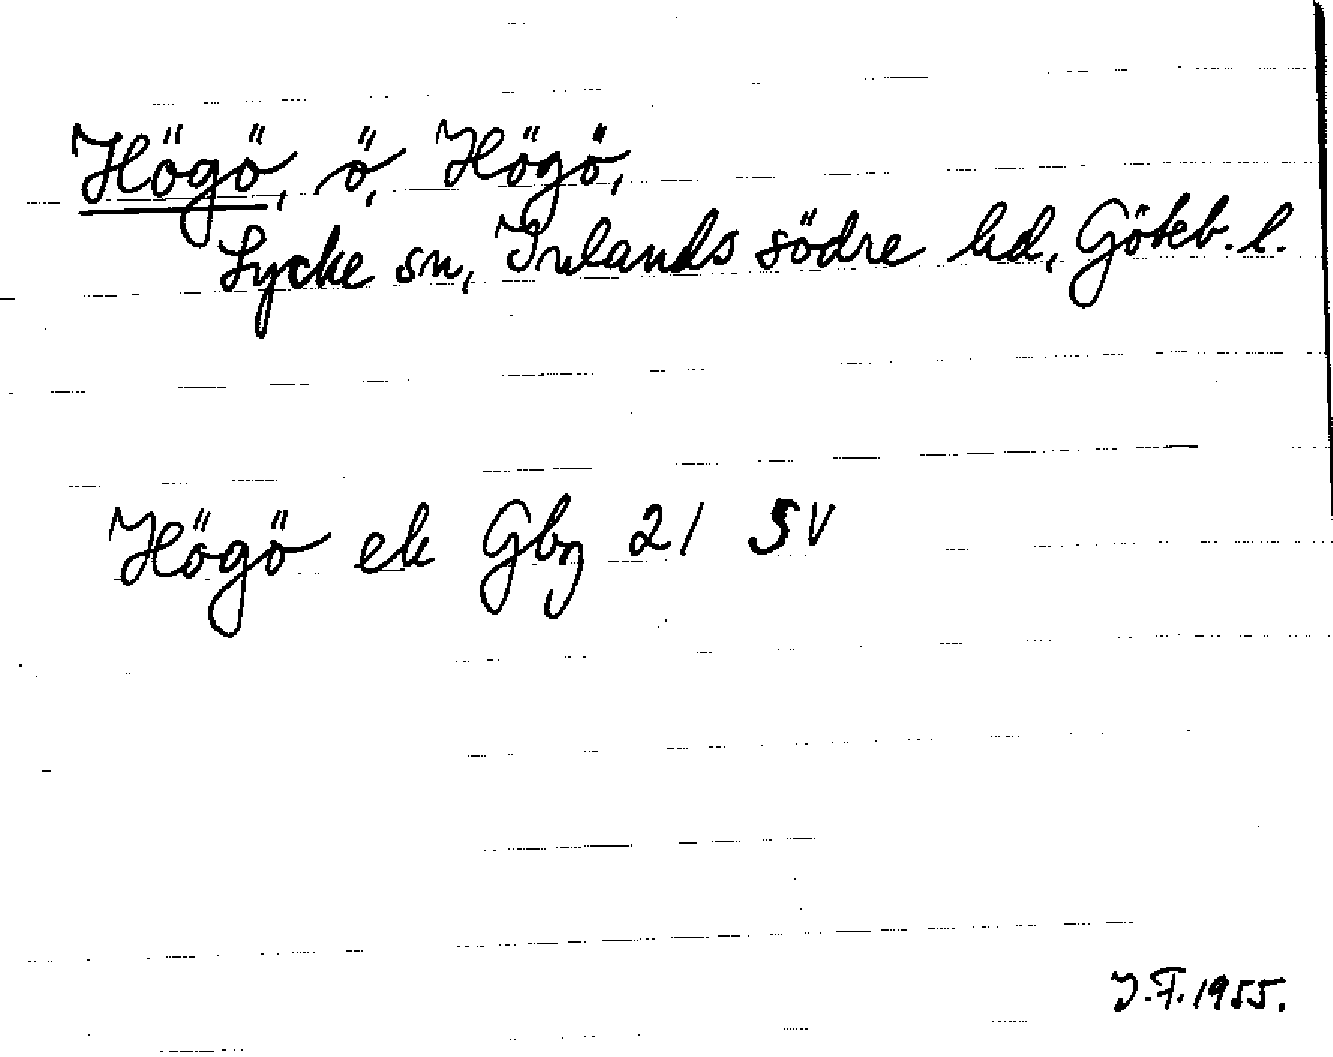 Högö, ö, Högö,
Lycke sn, Inlands södre hd, Göteb. l.
Högö ek Gbg 21 SV
J.F. 1955.